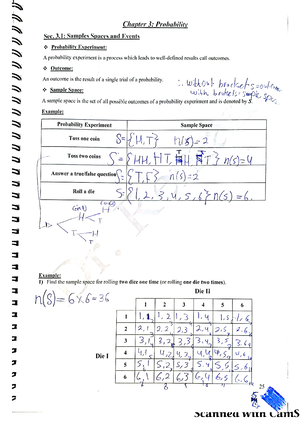 Chapter 3: Probability
Sec. 3.1: Samples Spaces and Events
❖ Probability Experiment:
A probability experiment is a process which leads to well-defined results call outcomes.
❖ Outcome:
An outcome is the result of a single trial of a probability experiment.
∴ without brackets = outcome
with brackets = sample space
❖ Sample Space:
A sample space is the set of all possible outcomes of a probability experiment and is denoted by S.
Example:
Probability Experiment Sample Space
Toss one coin S={H,T} n(S)=2
Toss two coins S={HH, HT, TH, TT} n(S)=4
Answer a true/false question S={T,F} n(S)=2
Roll a die S={1,2,3,4,5,6} n(S)=6.
H H
T
T H
T
Example:
1) Find the sample space for rolling two dice one time (or rolling one die two times).
n(S)=6×6=36
Die II
1 2 3 4 5 6
1 1,1 1,2 1,3 1,4 1,5 1,6
2 2,1 2,2 2,3 2,4 2,5 2,6
Die I
3 3,1 3,2 3,3 3,4 3,5 3,6
4 4,1 4,2 4,3 4,4 4,5 4,6
5 5,1 5,2 5,3 5,4 5,5 5,6
6 6,1 6,2 6,3 6,4 6,5 6,6
25
Scanned with CamS